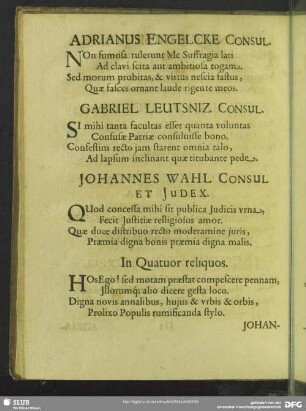 ADRIANUS ENGELCKE CONSUL.
NOn fumosa tulerunt Me Suffragia lati
Ad clavi scita aut ambitiosa togam.
Sed morum probitas, & virtus nescia fastus,
Quæ fasces ornant laude rigente meos.
GABRIEL LEUTSNIZ CONSUL.
SI mihi tanta facultas esset quanta voluntas
Confusæ Patriæ consuluisse bono.
Confestim recto jam starent omnia talo,
Ad lapsum inclinant quæ titubante pede.
JOHANNES WAHL CONSUL
ET JUDEX.
QUod concessa mihi sit publica Judicis vrna,
Fecit Justitiæ religiosus amor.
Quæ duce distribuo recto moderamine juris,
Præmia digna bonis præmia digna malis.
In Quatuor reliquos.
HOs Ego! sed motam præstat compescere pennam,
Illorumq; alio dicere gesta loco.
Digna novis annalibus, hujus & vrbis & orbis,
Prolixo Populis rumificanda stylo.
JOHAN-
SLUB
Wir führen Wissen.
DFG